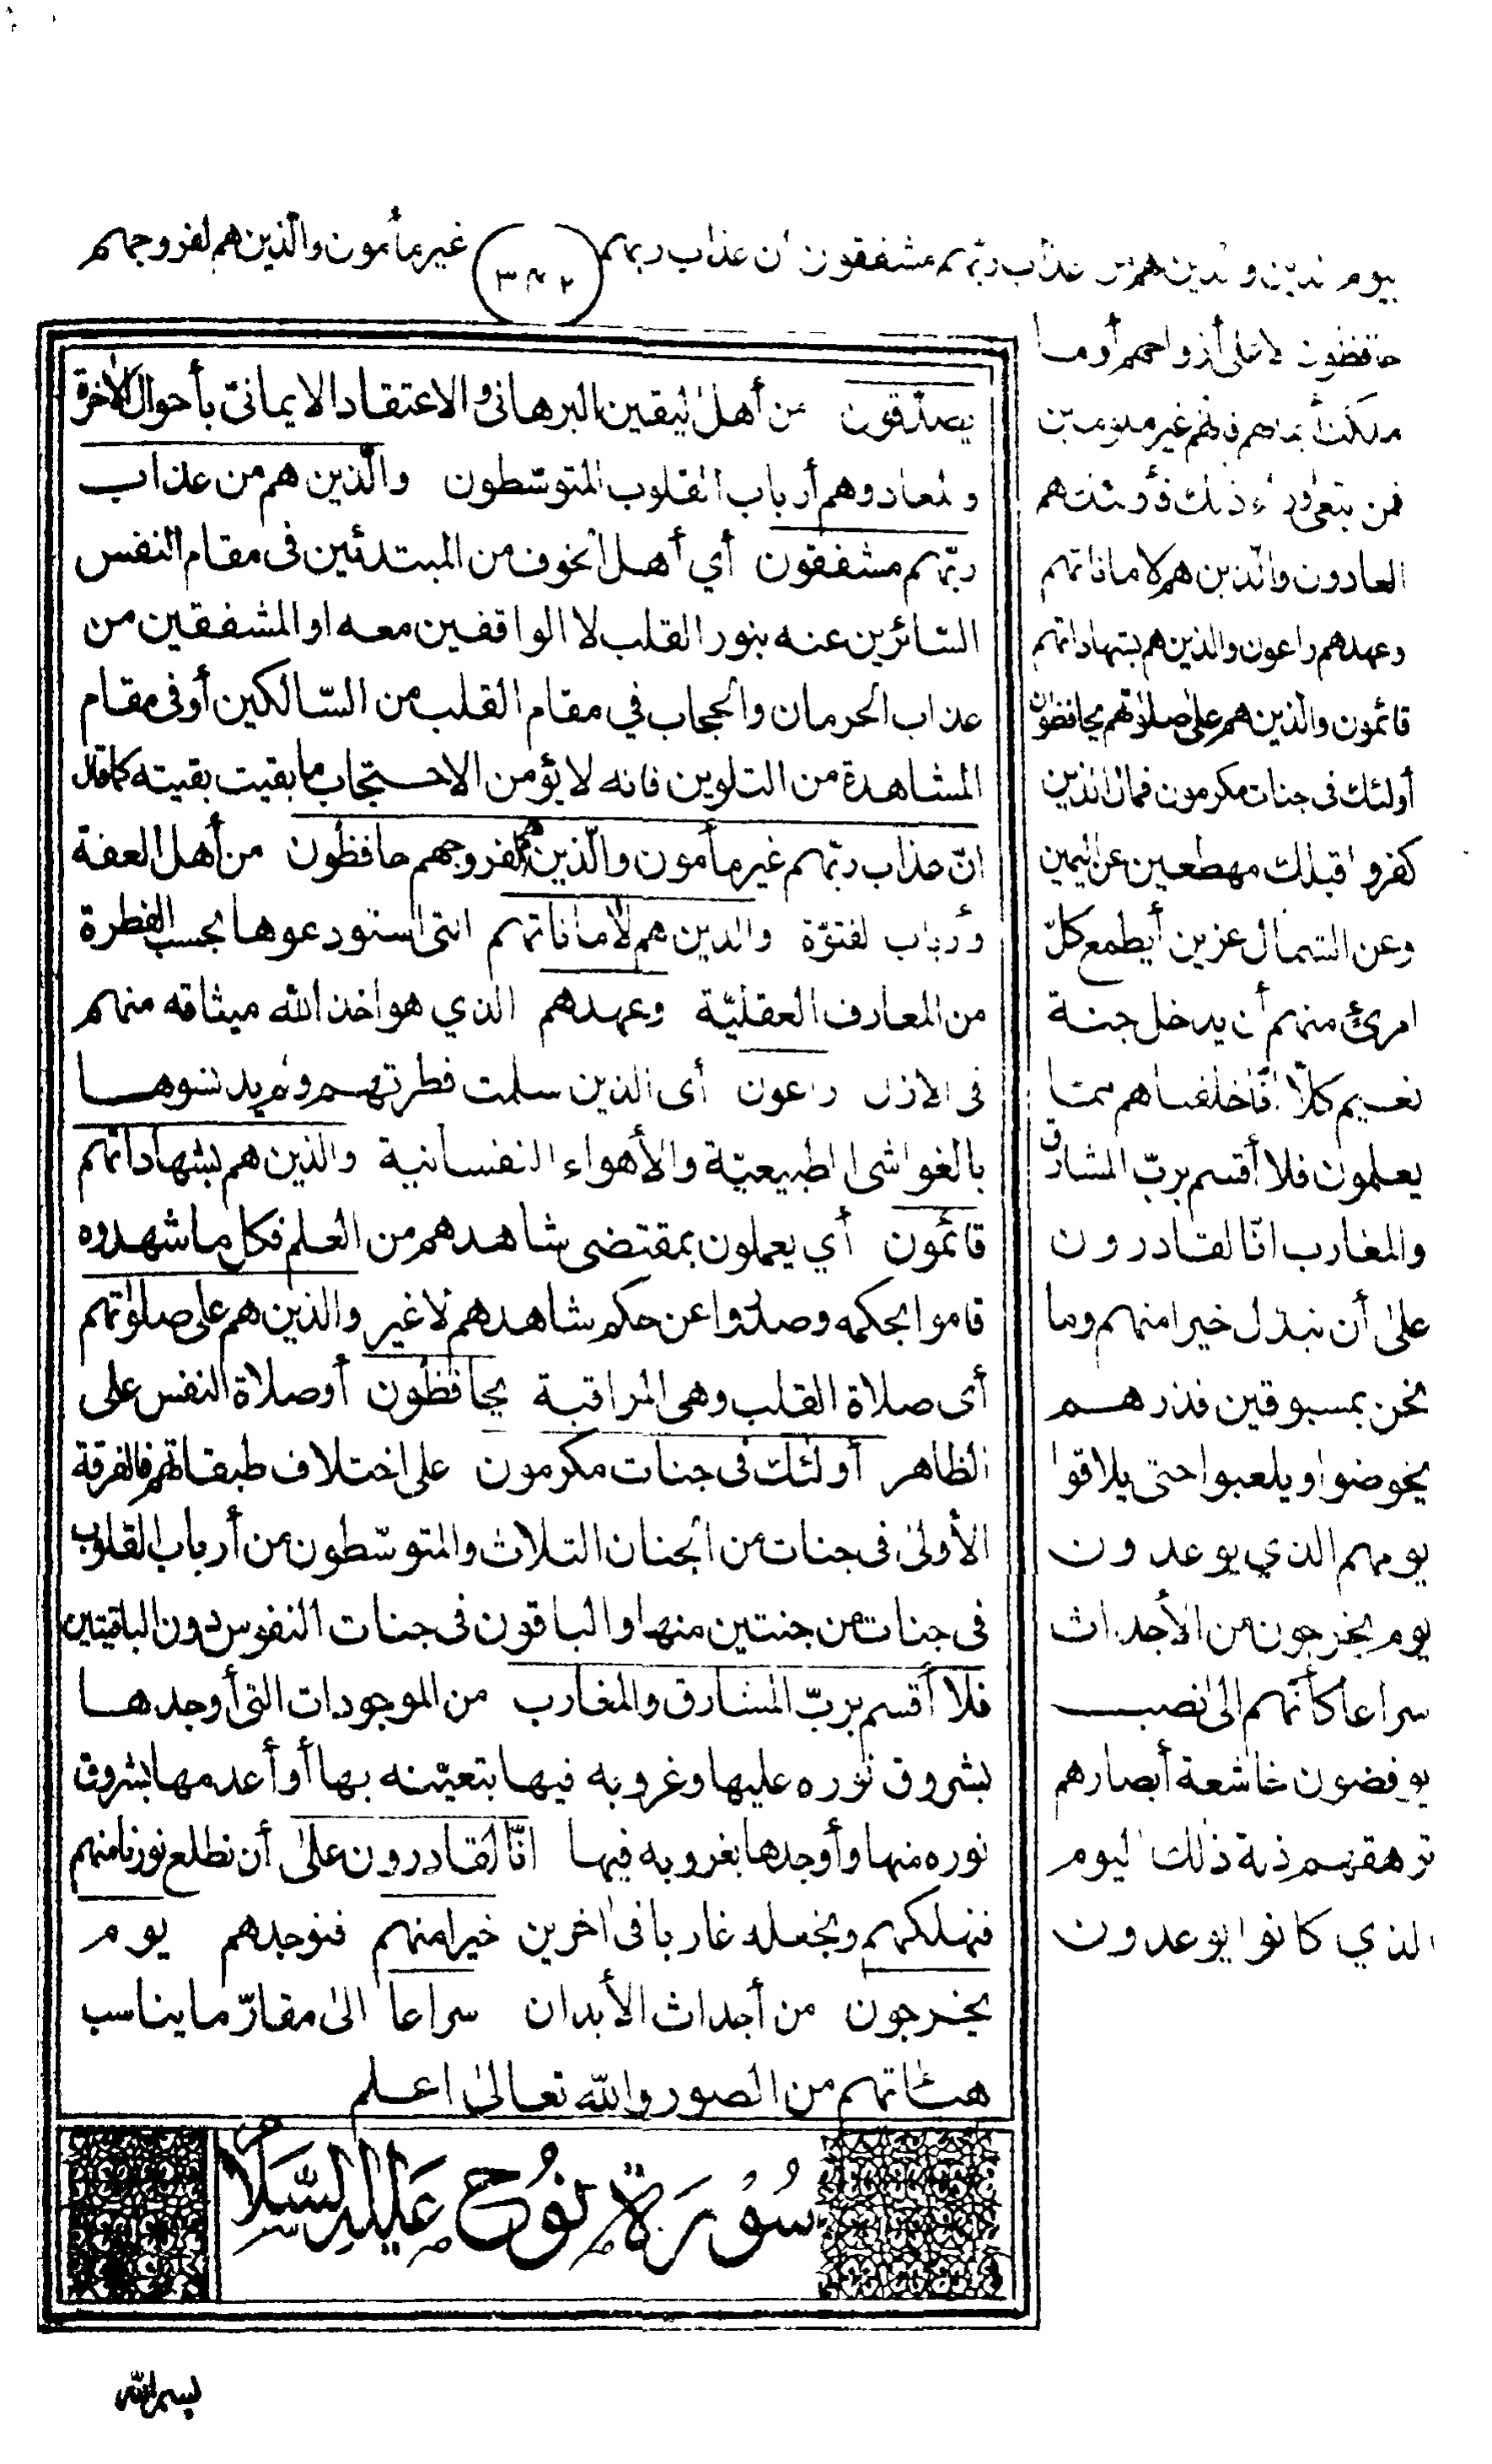 بيوم الدين والذين هم من عذاب ربهم مشفقون ان عذاب ربهم
غير مأمون والذين هم لفروجهم
٣٤٢
حافظون الا على أزواجهم أو ما
ملكت أيمانهم فانهم غير ملومين
فمن ابتغى وراء ذلك فأولئك هم
العادون والذين هم لاماناتهم
وعهدهم راعون والذين هم بشهاداتهم
قائمون والذين هم على صلوتهم يحافظون
أولئك فى جنات مكرمون فمال الذين
كفروا قبلك مهطعين عن اليمين
وعن الشمال عزين أيطمع كلّ
امرئ منهم أن يدخل جنة
نعيم كلّا انّا خلقناهم مما
يعلمون فلا أقسم بربّ المشارق
والمغارب انّا لقادرون
على أن نبدّل خيرا منهم وما
نحن بمسبوقين فذرهم
يخوضوا ويلعبوا حتى يلاقوا
يومهم الذي يوعدون
يوم يخرجون من الأجداث
سراعا كأنهم الى نصب
يوفضون خاشعة أبصارهم
ترهقهم ذلة ذلك اليوم
الذي كانوا يوعدون
يصدّقون من أهل اليقين البرهانى والاعتقاد الايمانىّ بأحوال الآخرة
والمعاد وهم أرباب القلوب المتوسّطون والّذين هم من عذاب
ربّهم مشفقون أي أهل الخوف من المبتدئين فى مقام النفس
السّائرين عنه بنور القلب لا الواقفين معه او المشفقين من
عذاب الحرمان والحجاب في مقام القلب من السّالكين أو فى مقام
المشاهدة من التلوين فانه لا يؤمن الاحتجاب ما بقيت بقيته كما قال
انّ عذاب ربّهم غير مأمون والّذين هم لفروجهم حافظون من أهل العفة
وأرباب الفتوّة والذين هم لأماناتهم التى استودعوها بحسب الفطرة
من المعارف العقليّة وعهدهم الذي هو اخذ الله ميثاقه منهم
فى الازل راعون أى الذين سلمت فطرتهم ولم يدنسوها
بالغواشى الطبيعيّة والأهواء النفسانية والذين هم بشهاداتهم
قائمون أي يعملون بمقتضى شاهدهم من العلم فكل ما شهدوه
قاموا بحكمه وصدروا عن حكم شاهدهم لا غير والذين هم على صلوتهم
أى صلاة القلب وهى المراقبة يحافظون أو صلاة النفس على
الظاهر أولئك فى جنات مكرمون على اختلاف طبقاتهم فالفرقة
الأولى فى جنات من الجنان الثلاث والمتوسّطون من أرباب القلوب
فى جنات من جنتين منها والباقون فى جنات النفوس دون الباقيتين
فلا أقسم بربّ المشارق والمغارب من الموجودات التى أوجدها
بشروق نوره عليها وغروبه فيها بتعيّنه بها أو أعدمها بشروق
نوره منها وأوجدها بغروبه فيها انّا لقادرون على أن نطلع نورنا منهم
فنهلكهم ونجعله غاربا فى آخرين خيرا منهم فنوجدهم يوم
يخرجون من أجداث الأبدان سراعا الى مقارّ ما يناسب
هيئاتهم من الصور والله تعالى اعلم
سورة نوح عليه السلام
بسم الله